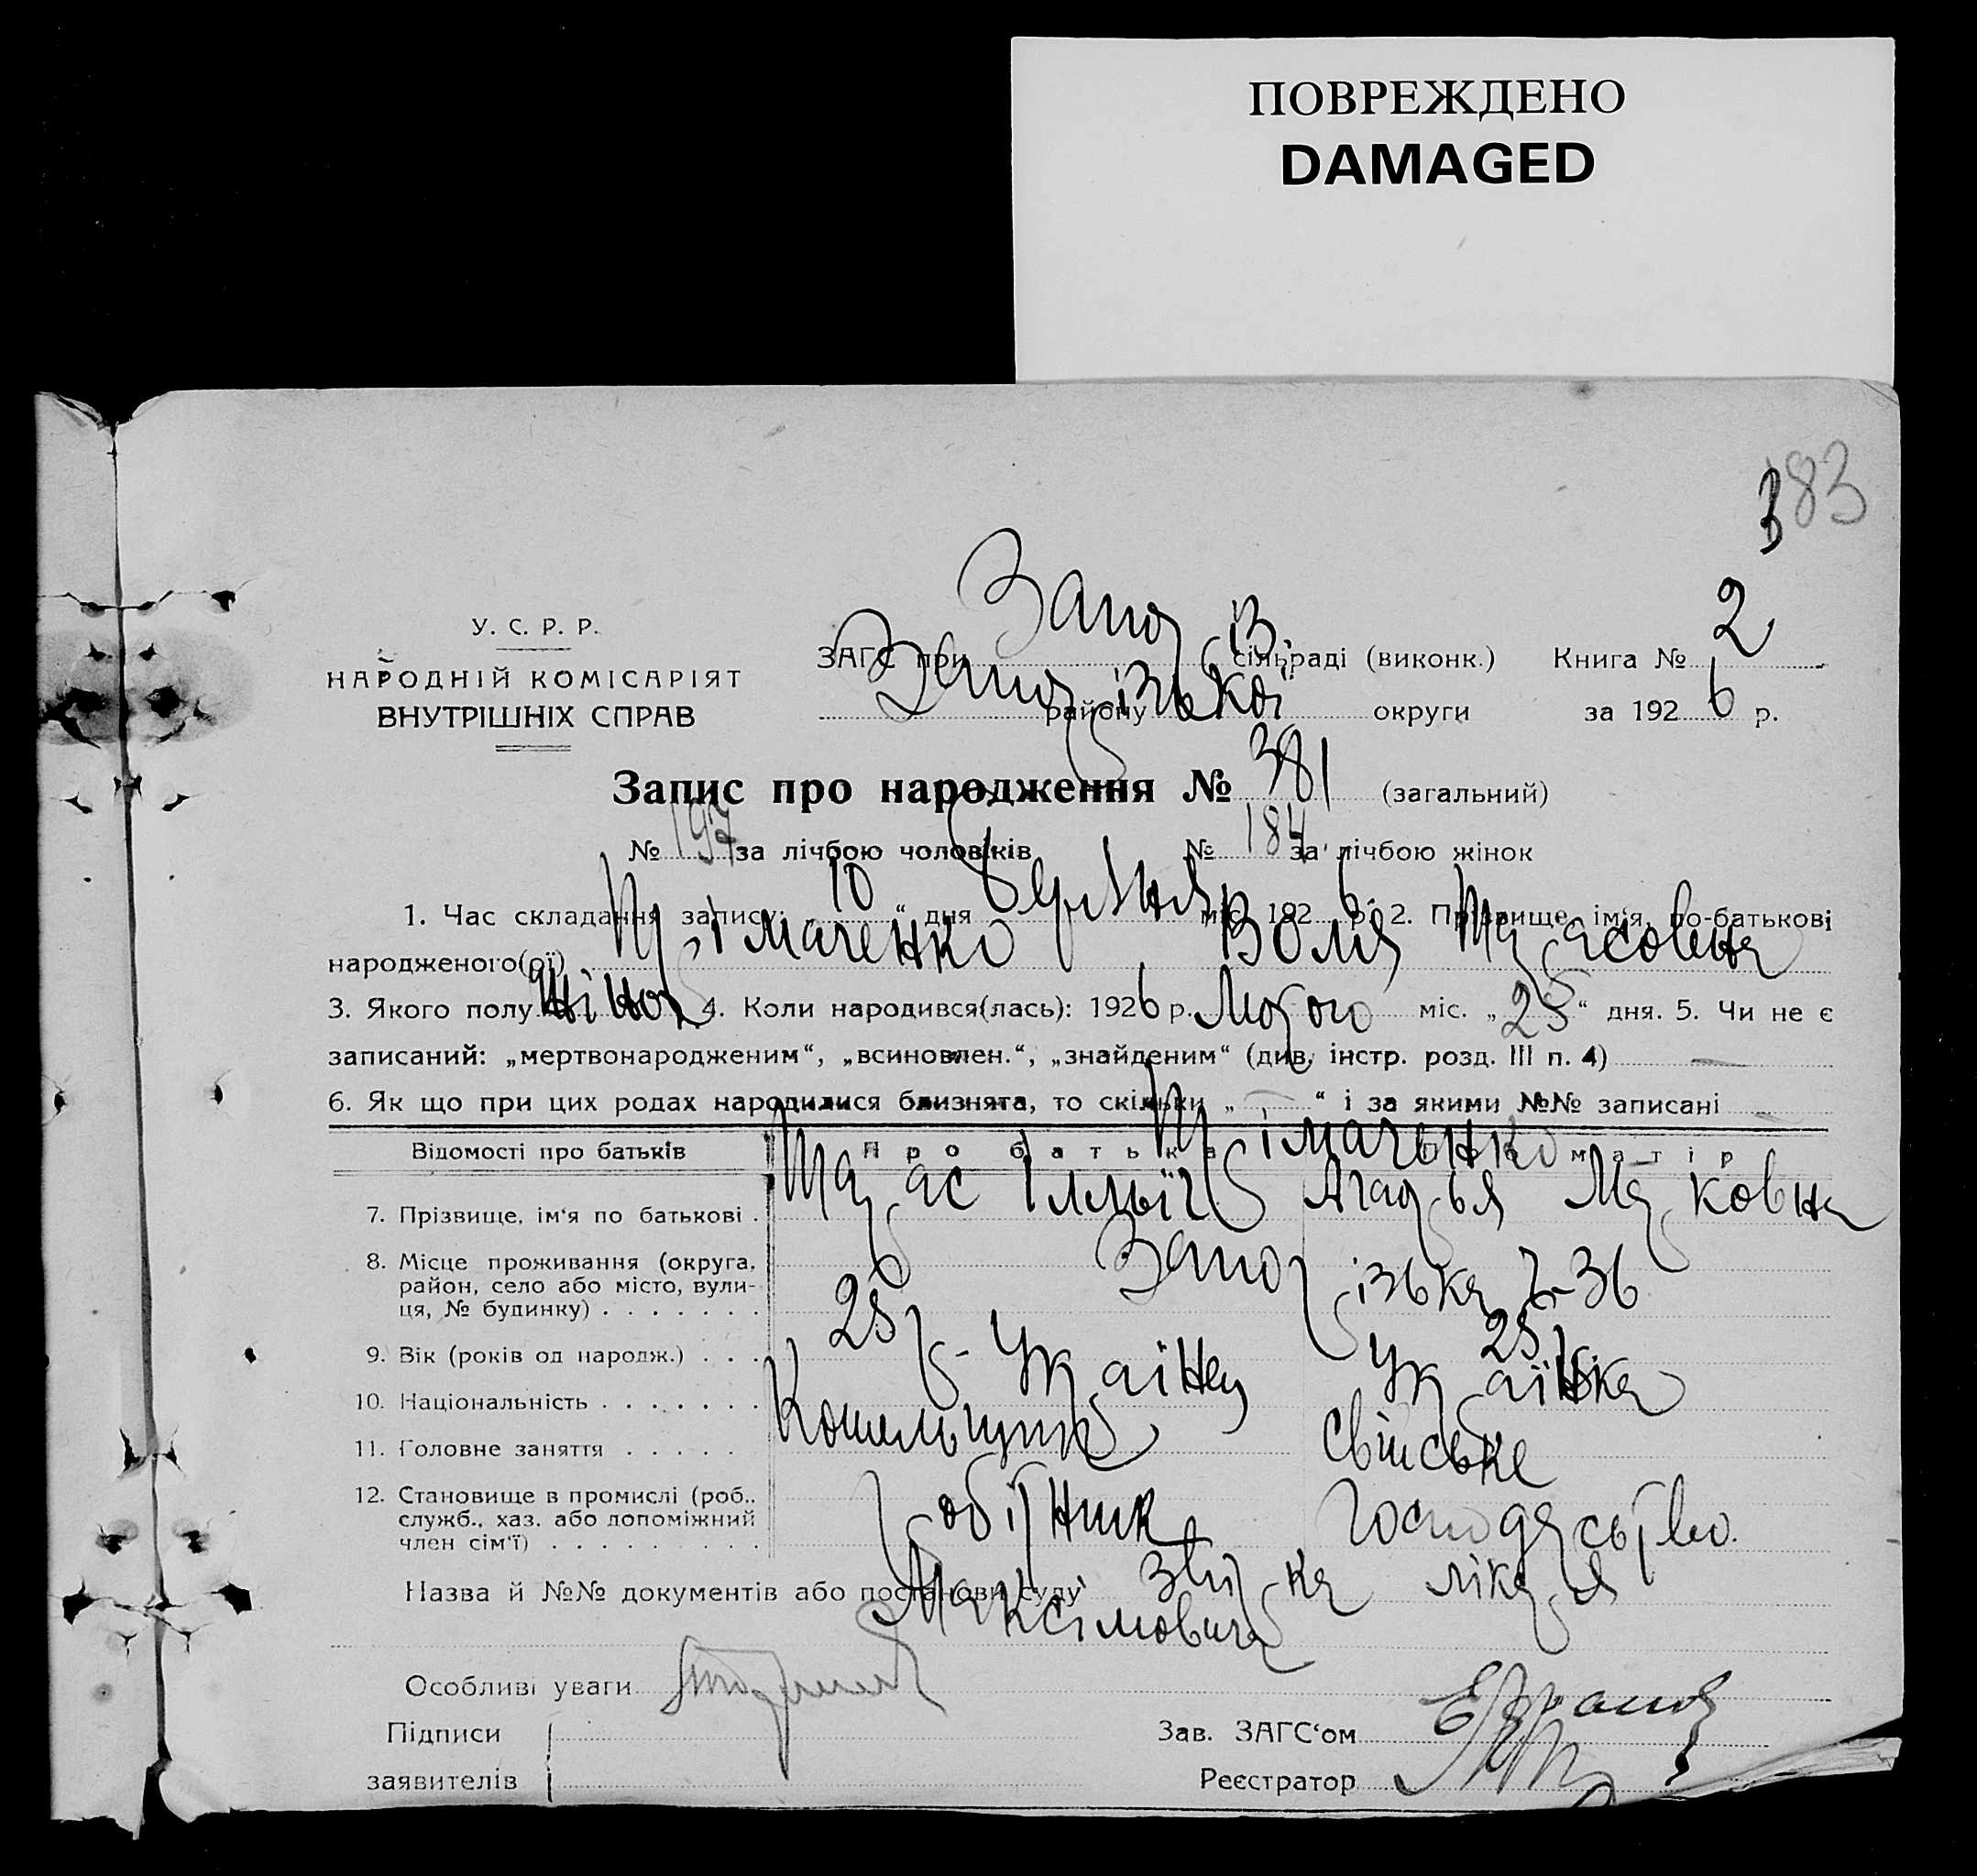 ПОВРЕЖДЕНО
DAMAGED
383
У. С. Р. Р.
НАРОДНІЙ КОМІСАРІЯТ
ВНУТРІШНІХ СПРАВ
ЗАГС при сільраді (виконк.) Книга № 2
району Запорізької округи за 1926 р.
Запис про народження № 381 (загальний)
№ 197 за лічбою чоловіків № 184 за лічбою жінок
1. Час складання запису: „10“ дня березня міс. 1926 р. 2. Прізвище, ім‘я, по-батькові
народженого(ої) Тарасовна
3. Якого полу жіноч. 4. Коли народився(лась): 1926 р. Лютого міс. „25“ дня. 5. Чи не є
записаний: „мертвонародженим“, „всиновлен.“, „знайденим“ (див. інстр. розд. III п. 4)
6. Як що при цих родах народилися близнята, то скільки „ “ і за якими №№ записані
Відомості про батьків Про батька матір
7. Прізвище, ім‘я по батькові . Тарас Ілльїч Марковна
8. Місце проживання (округа,
район, село або місто, вули-
ця, № будинку) . . . . . . . Запорізька 36
9. Вік (років од народж.) . . . 25 р. 25 р.
10. Національність . . . . . . . Українец Українка
11. Головне заняття . . . . . Котельщик свійське
12. Становище в промислі (роб.,
служб., хаз. або допоміжний
член сім‘ї) . . . . . . . . . робітник господарство.
Назва й №№ документів або постанови суду лікаря
Максімовича
Особливі уваги
Підписи Зав. ЗАГС‘ом
заявителів Реєстратор